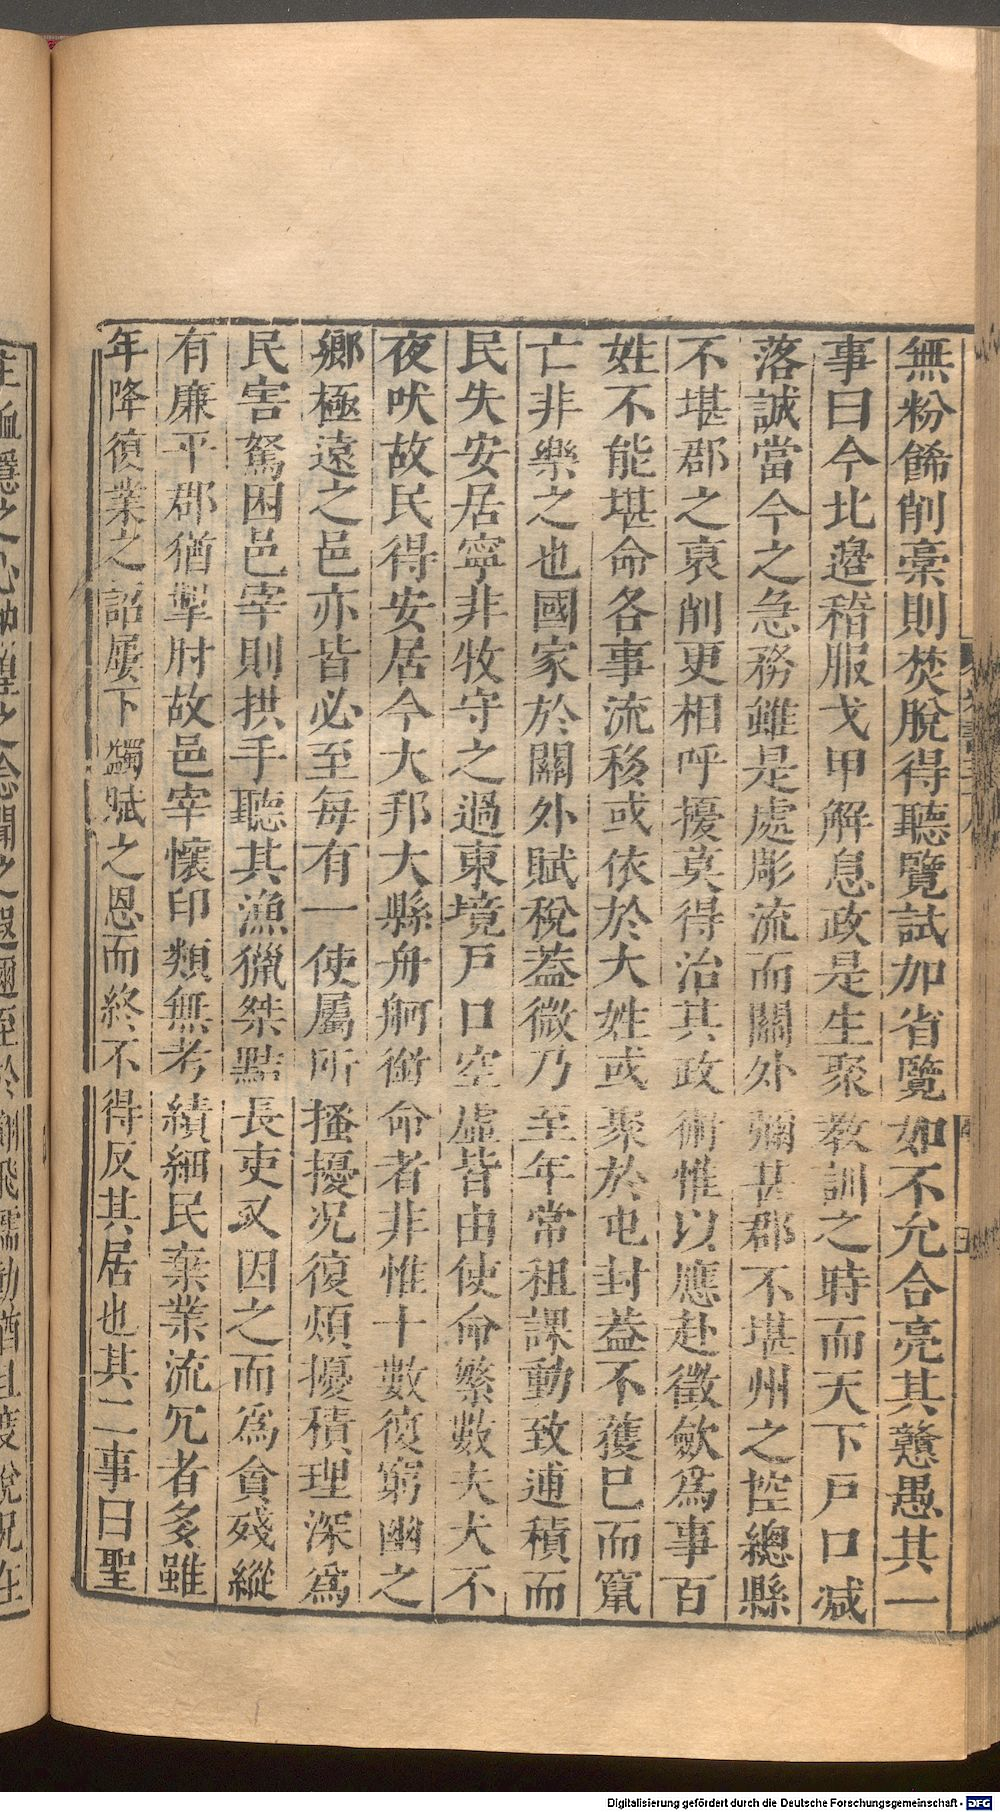 無粉餙削槀則焚脫得聽覽試加省覽如不允合亮其戇愚其一
事曰今北邉稽服戈甲解息政是生聚敎訓之時而天下戶口减
落誠當今之急務雖是處彫流而關外彌甚郡不堪州之控總縣
不堪郡之裒削更相呼擾莫得治其政術惟以應赴徵歛爲事百
姓不能堪命各事流移或依於大姓或聚於屯封葢不獲已而竄
亡非樂之也國家於關外賦稅葢微乃至年常租課動致逋積而
民失安居寧非牧守之過東境戶口空虛皆由使命繁數夫犬不
夜吠故民得安居今大邦大縣舟舸銜命者非惟十數復窮幽之
鄉極遠之邑亦皆必至每有一使屬所搔擾况復煩擾積理深爲
民害駑困邑宰則拱手聽其漁獵桀黠長吏又因之而爲貪殘縱
有廉平郡猶掣肘故邑宰懷印類無考績細民棄業流冗者多雖
年降復業之詔屢下蠲賦之恩而終不得反其居也其二事曰聖
Digitalisierung gefördert durch die Deutsche Forschungsgemeinschaft - DFG